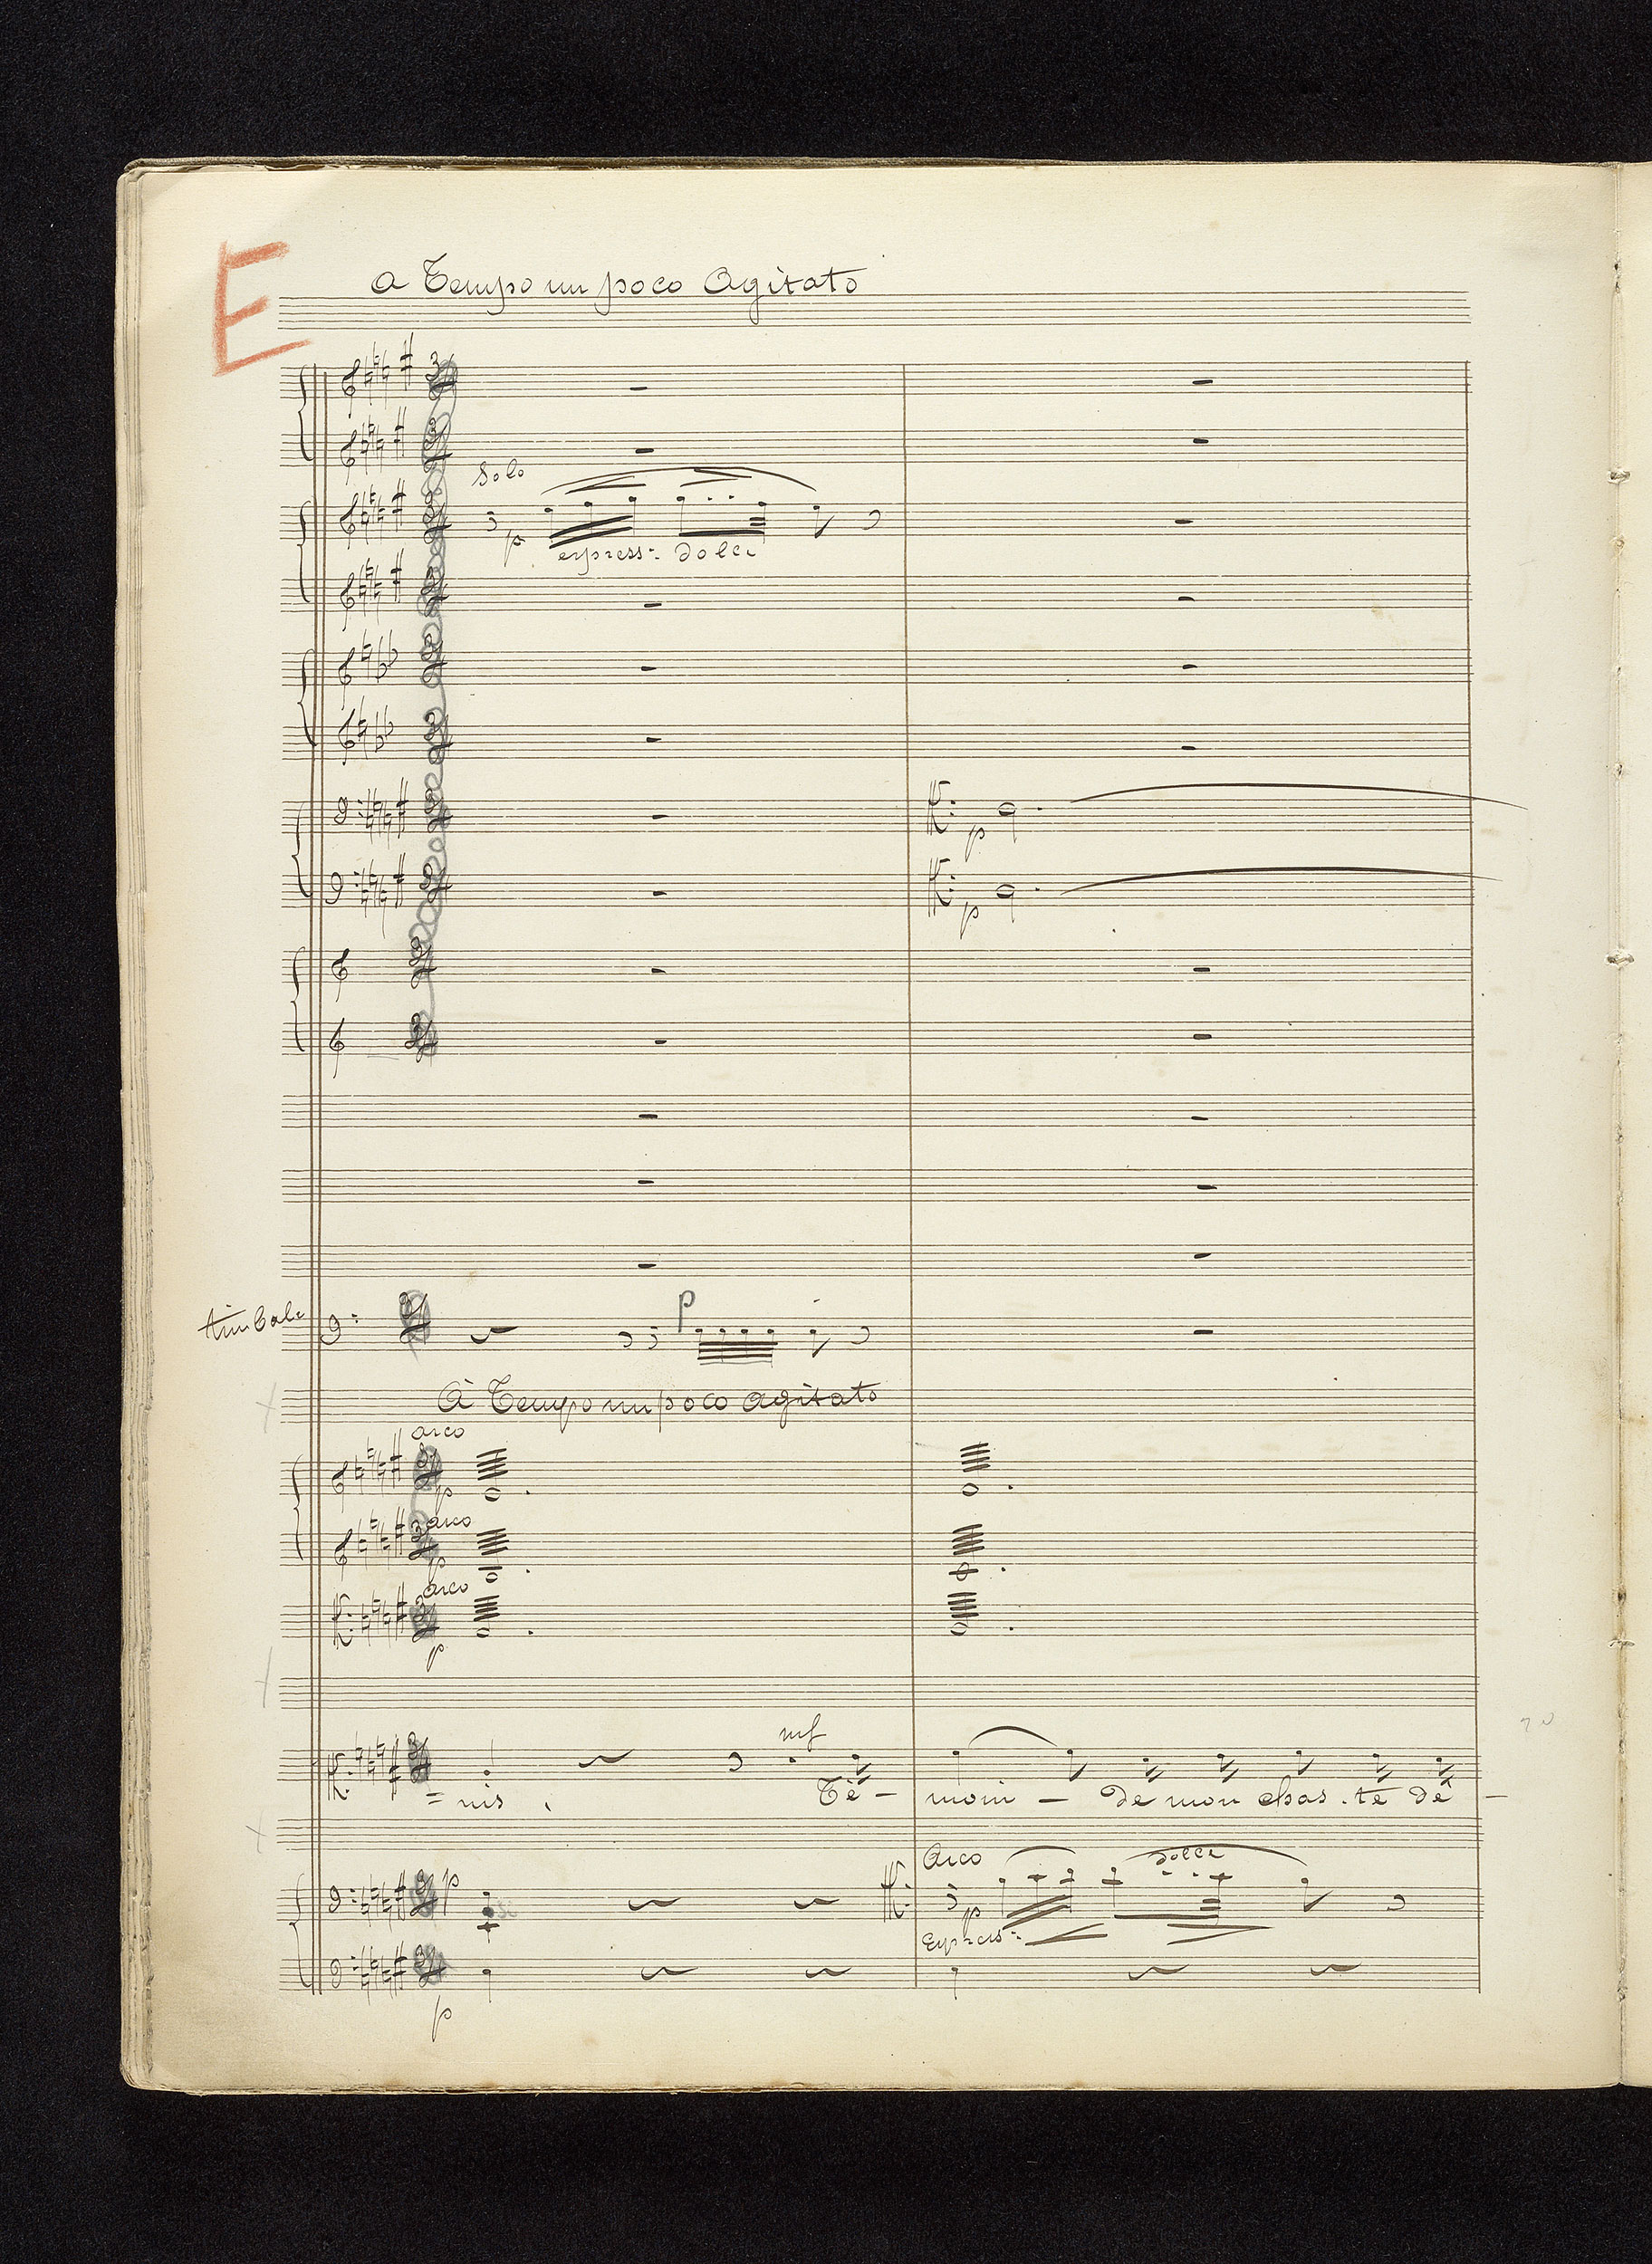 E
a Tempo un poco Agitato
Solo
p
express: dolce
p
p
timbale
p
A Tempo un poco agitato
arco
p
arco
p
arco
p
mf
= nis , Té - moin - de mon chas - te dé -
Arco dolce
p p
Express:
p